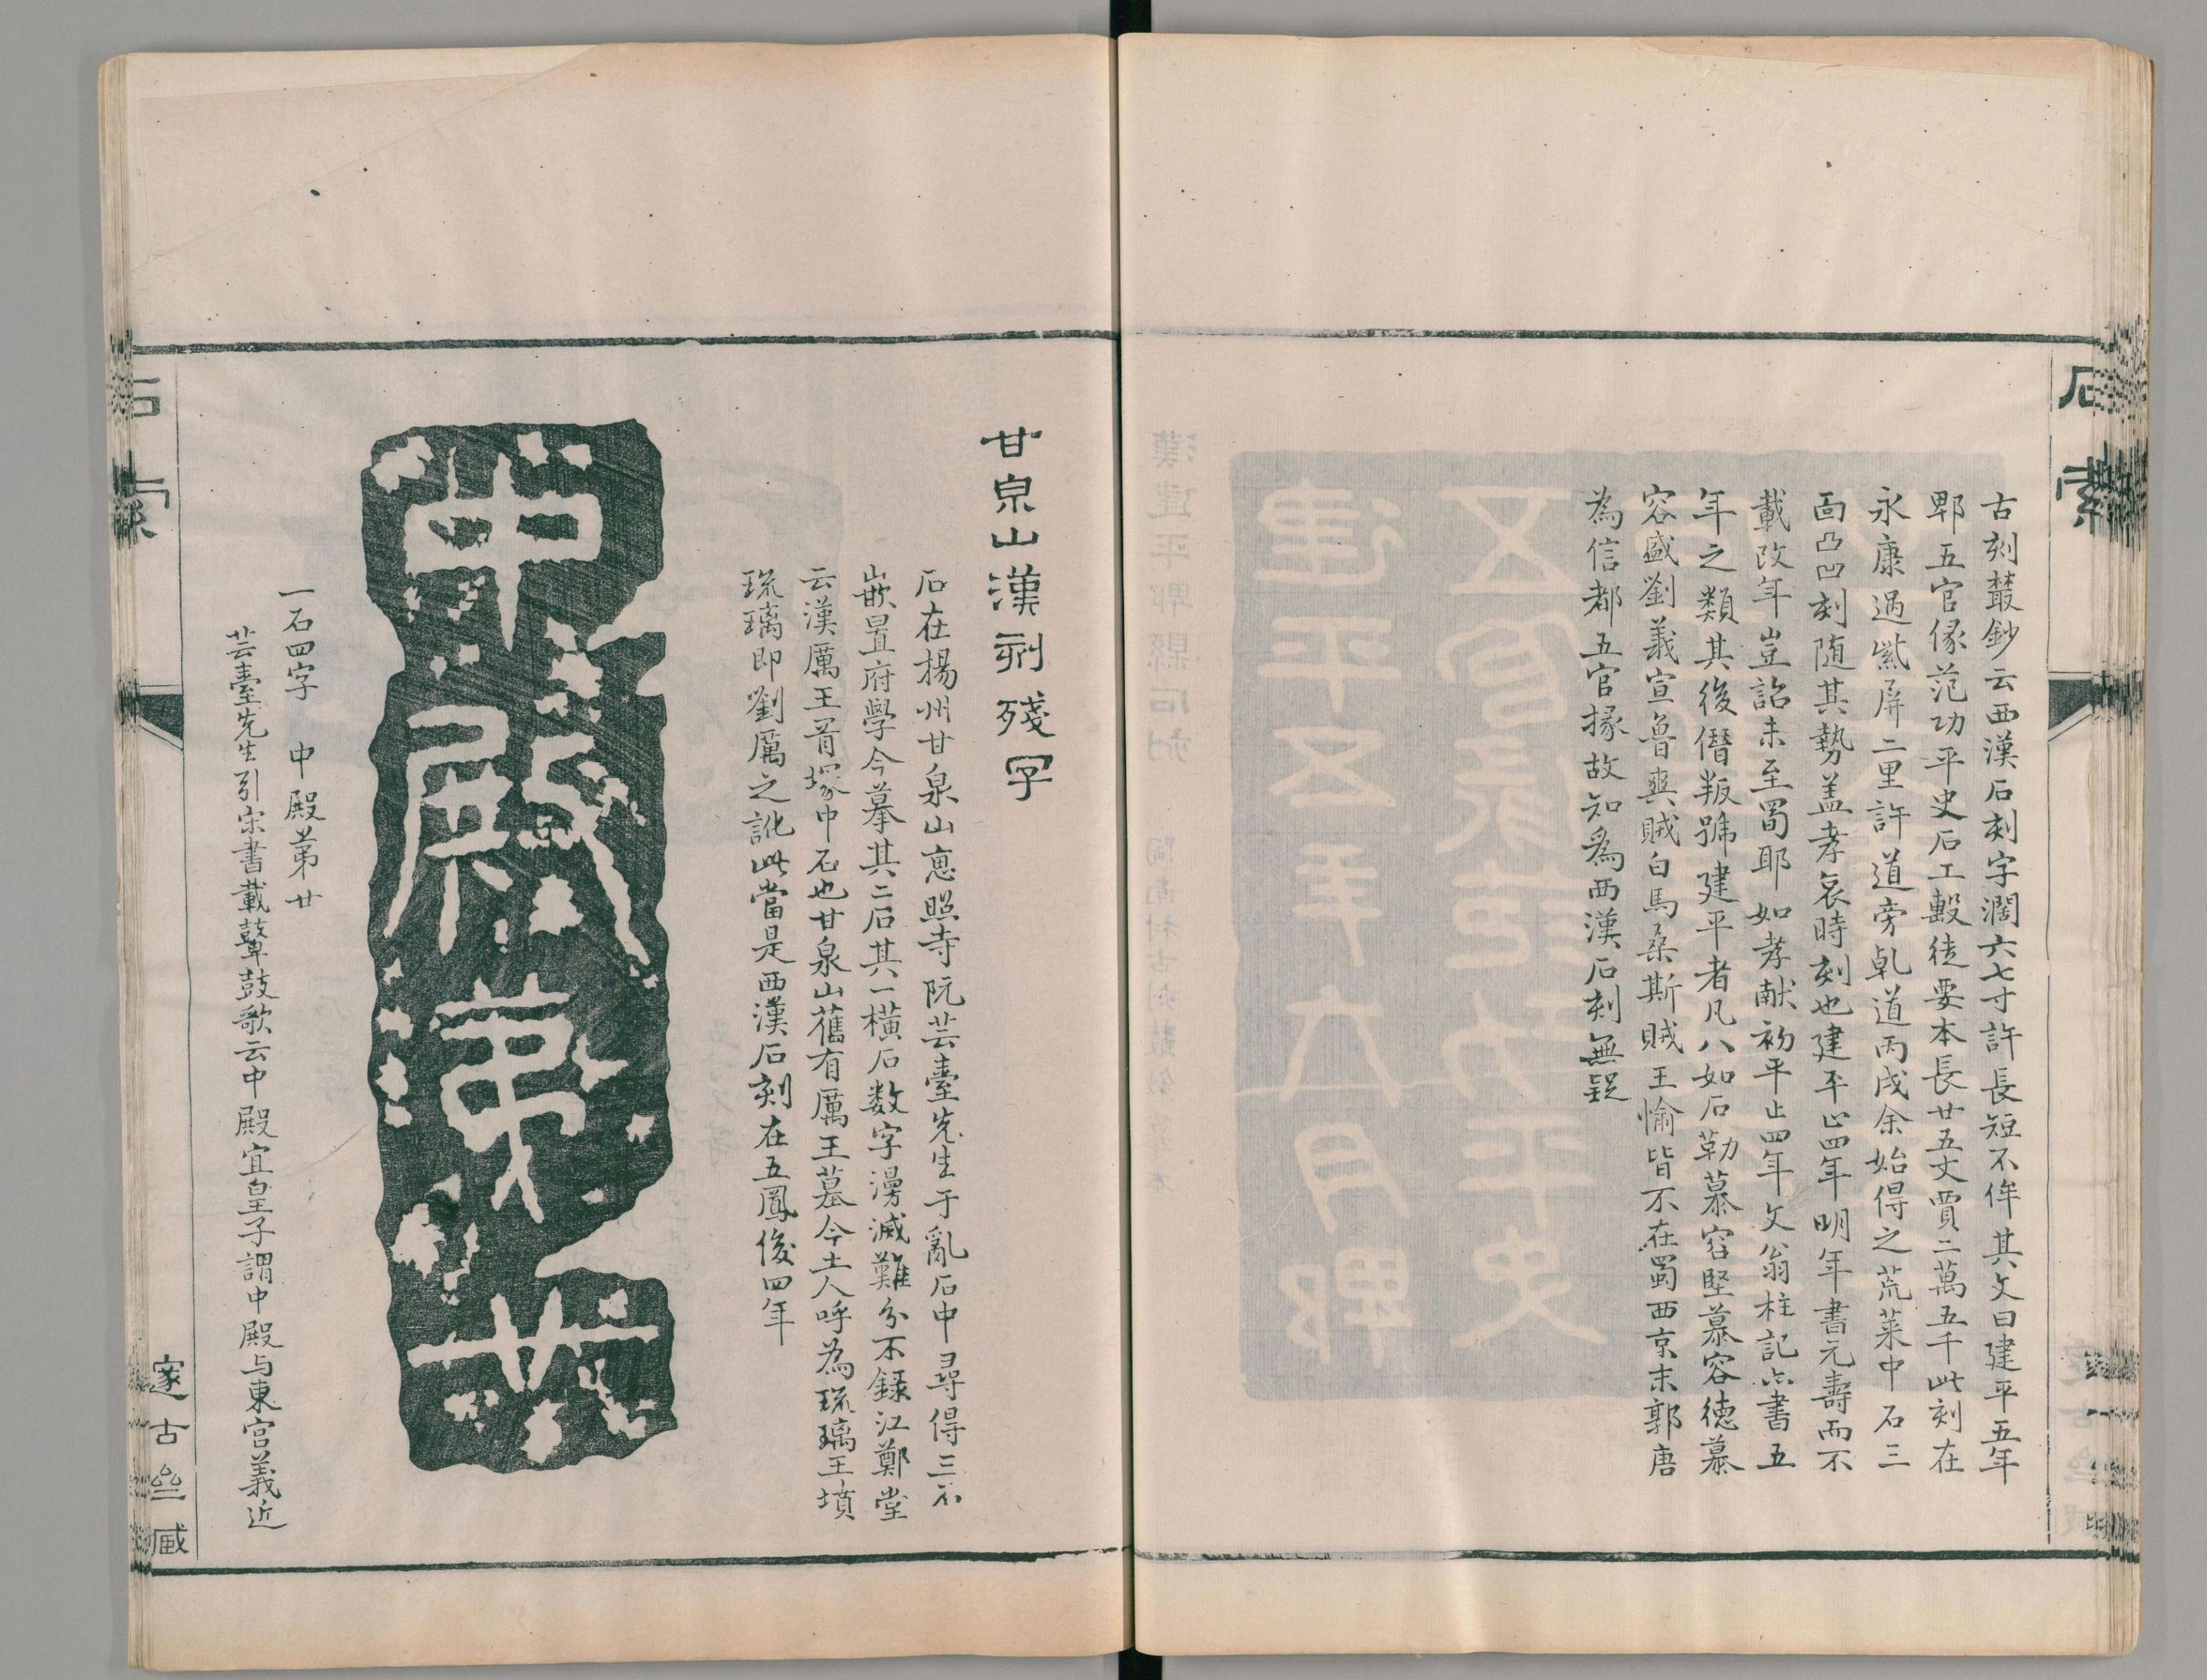 石索
古刻叢鈔云西漢石刻字濶六七寸許長短不侔其文曰建平五年
郫五官掾范功平史石工㲄徒要本長廿五丈賈二萬五千此刻在
永康過紫屏二里許道旁乹道丙戌余始得之荒菜中石三
面凸凹刻随其勢盖孝哀時刻也建平止四年明年書元壽而不
載改年豈詔未至蜀耶如孝献初平止四年文翁柱記亦書五
年之類其後僭叛號建平者凡八如石勒慕容堅慕容德慕
容盛劉義宣魯爽賊白馬桑斯賊王愉皆不在蜀西京末郭唐
為信都五官掾故知為西漢石刻無疑
甘泉山漢刻殘字
石在楊州甘泉山惠照寺阮芸臺先生于亂石中尋得三石
嵌置府學今摹其二石其一横石数字漫滅難分不録江鄭堂
云漢厲王胥塚中石也甘泉山舊有厲王墓今土人呼為琉璃王墳
琉璃即劉厲之訛此當是西漢石刻在五鳳後四年
中殿第廿
一石四字 中殿苐廿
芸臺先生引宋書載鼙鼓歌云中殿宜皇子謂中殿与東宫義近
石索
邃古亝臧